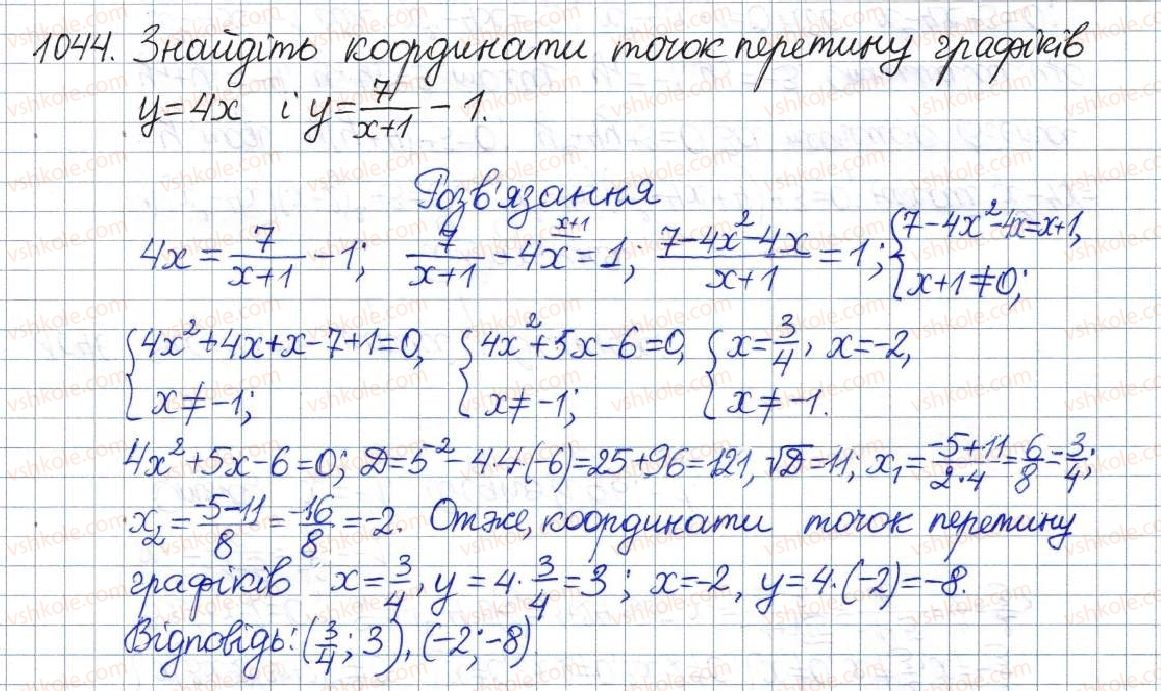 1044. Знайдіть координати точок перетину графіків
y=4x і y=7/(x+1) - 1.
Розв'язання
4x = 7/(x+1) - 1; 7/(x+1) - 4x^(x+1) = 1; (7-4x²-4x)/(x+1) = 1; {7-4x²-4x=x+1, x+1≠0;
{4x²+4x+x-7+1=0, x≠-1; {4x²+5x-6=0, x≠-1; {x=3/4, x=-2, x≠-1.
4x²+5x-6=0; D=5²-4·4·(-6)=25+96=121, √D=11; x₁=(-5+11)/(2·4)=6/8=3/4;
x₂=(-5-11)/8=-16/8=-2. Отже, координати точок перетину
графіків x=3/4, y=4·3/4=3; x=-2, y=4·(-2)=-8.
Відповідь: (3/4; 3), (-2; -8)